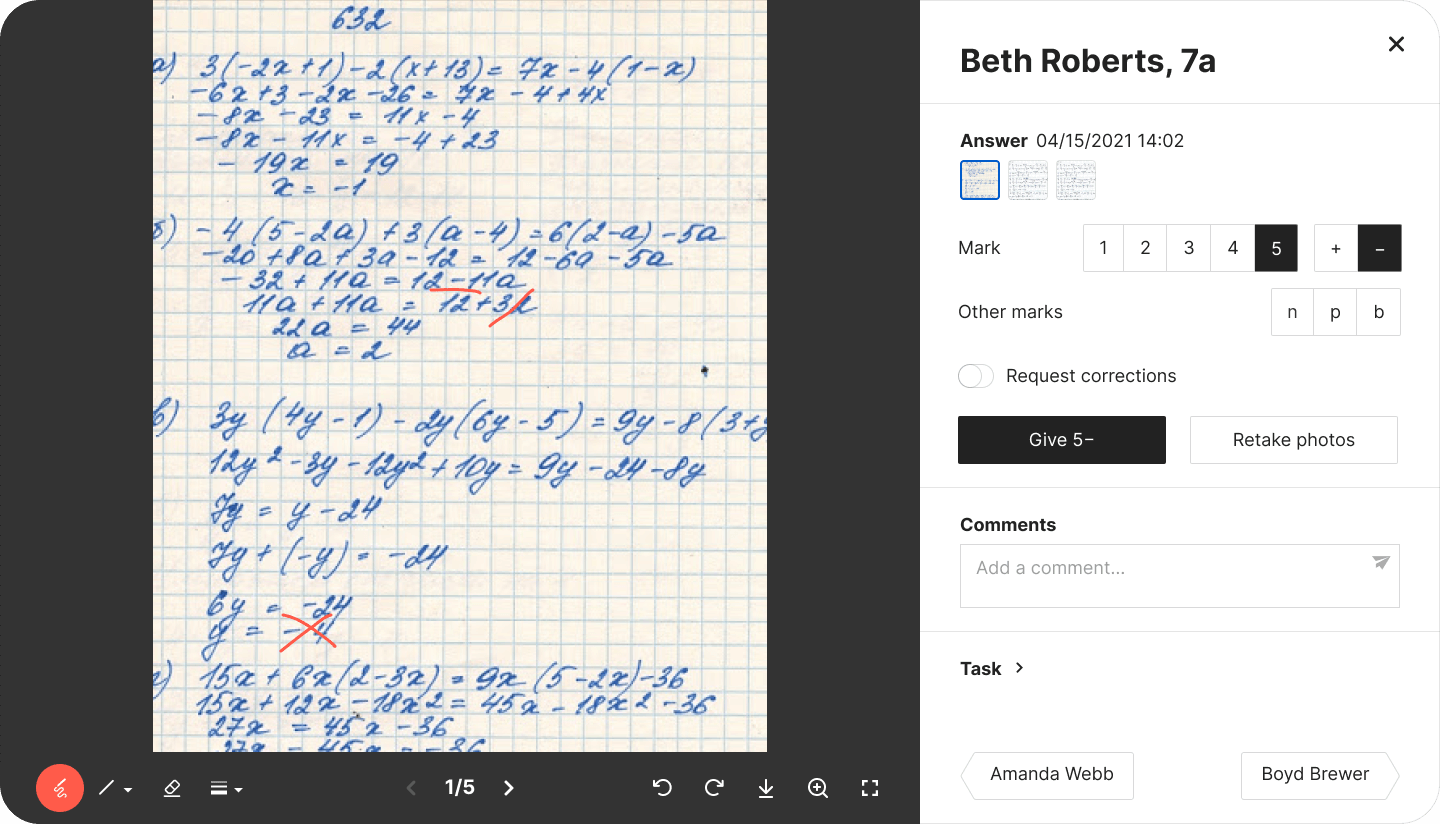 632
а) 3(-2x+1)-2(x+13)= 7x-4(1-x)
-6x+3-2x-26= 7x-4+4x
-8x-23 = 11x-4
-8x-11x = -4+23
-19x = 19
x = -1
б) -4(5-2a)+3(a-4)=6(2-a)-5a
-20+8a+3a-12= 12-6a-5a
-32+11a=12-11a
11a+11a = 12+32
22a = 44
a = 2
в) 3y(4y-1)-2y(6y-5)=9y-8(3+y
12y²-3y-12y²+10y= 9y-24-8y
7y = y-24
7y+(-y)= -24
6y = -24
y = -4
г) 15x+6x(2-3x)=9x(5-2x)-36
15x+12x-18x²= 45x-18x²-36
27x = 45x-36
27x - 45x = -36
1/5
Beth Roberts, 7a
Answer 04/15/2021 14:02
Mark 1 2 3 4 5 + −
Other marks n p b
Request corrections
Give 5− Retake photos
Comments
Add a comment...
Task
Amanda Webb Boyd Brewer